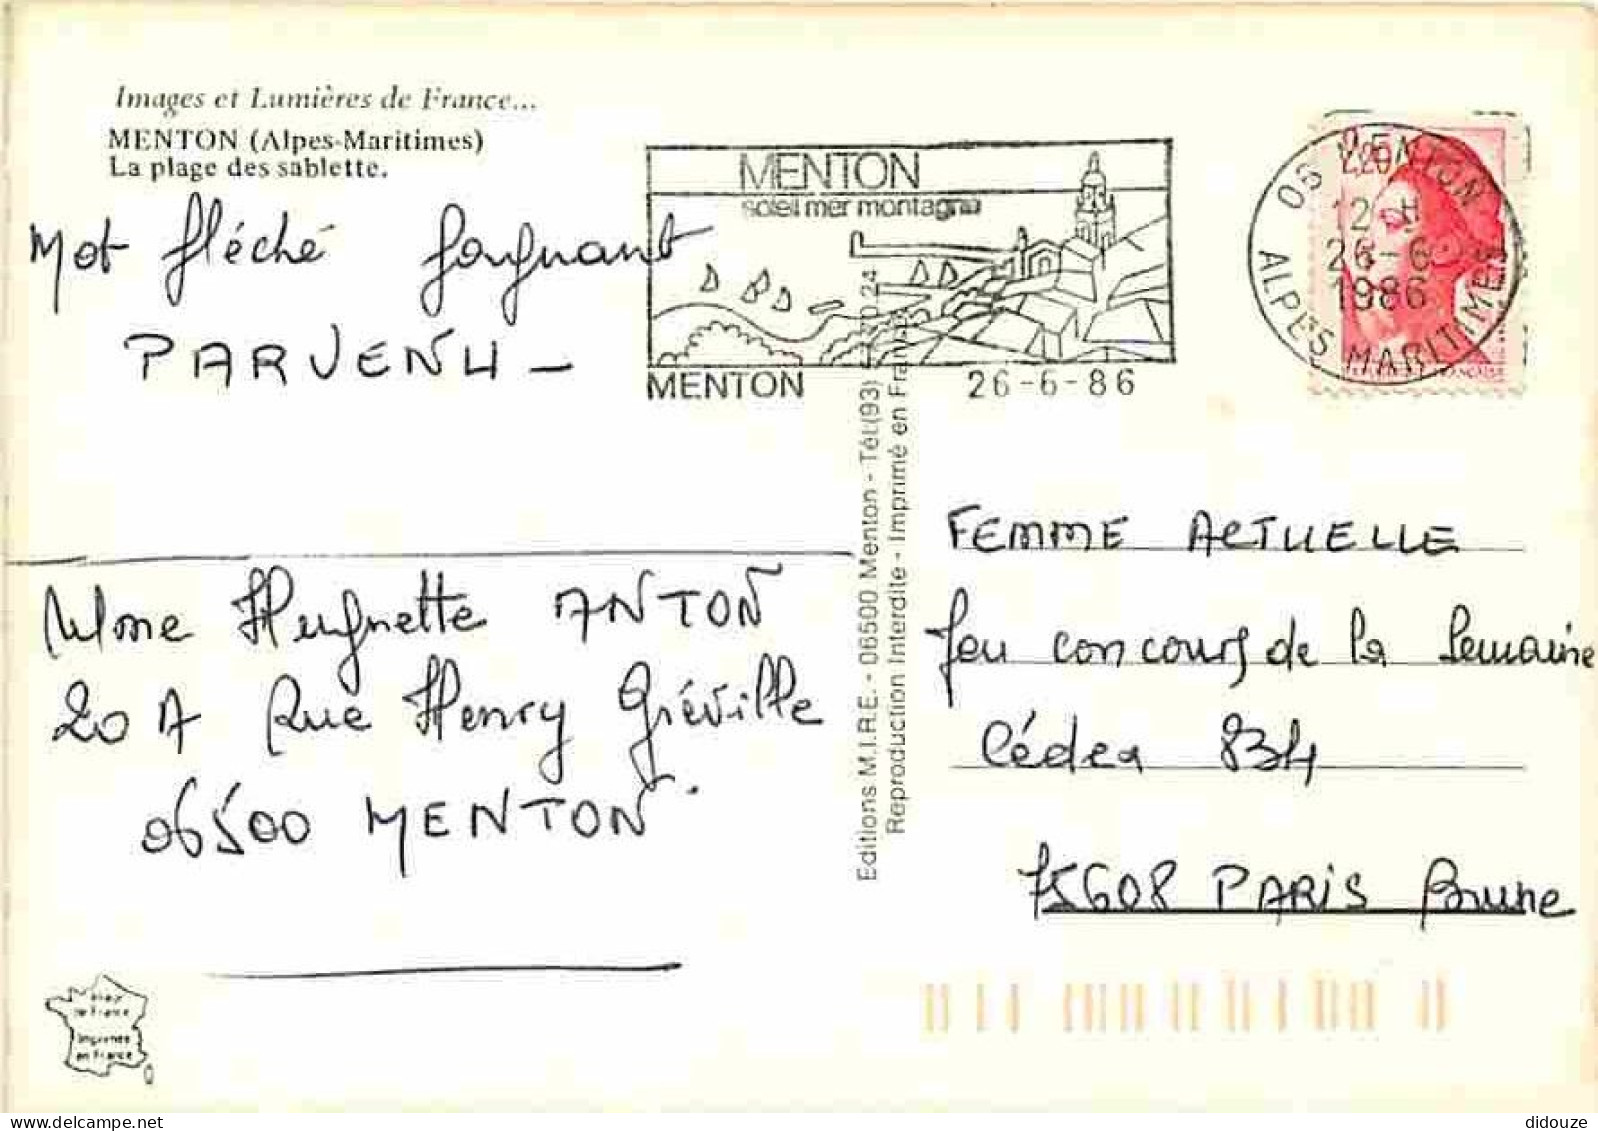 Images et Lumières de France...
MENTON (Alpes-Maritimes)
La plage des sablette.
Mot fléché gagnant
PARVENU -
Mme Huguette ANTON
20 A Rue Henry Gréville
06500 MENTON.
MENTON
soleil mer montagne
MENTON 26-6-86
06 MENTON
12 H
26-6
1986
ALPES MARITIMES
2,20
Editions M.I.R.E. - 06500 Menton - Tél.(93)
Reproduction Interdite - Imprimé en France
FEMME ACTUELLE
Jeu concours de la Semaine
Cédex 834
75608 PARIS Brune
de France
Imprimée
en France
didouze